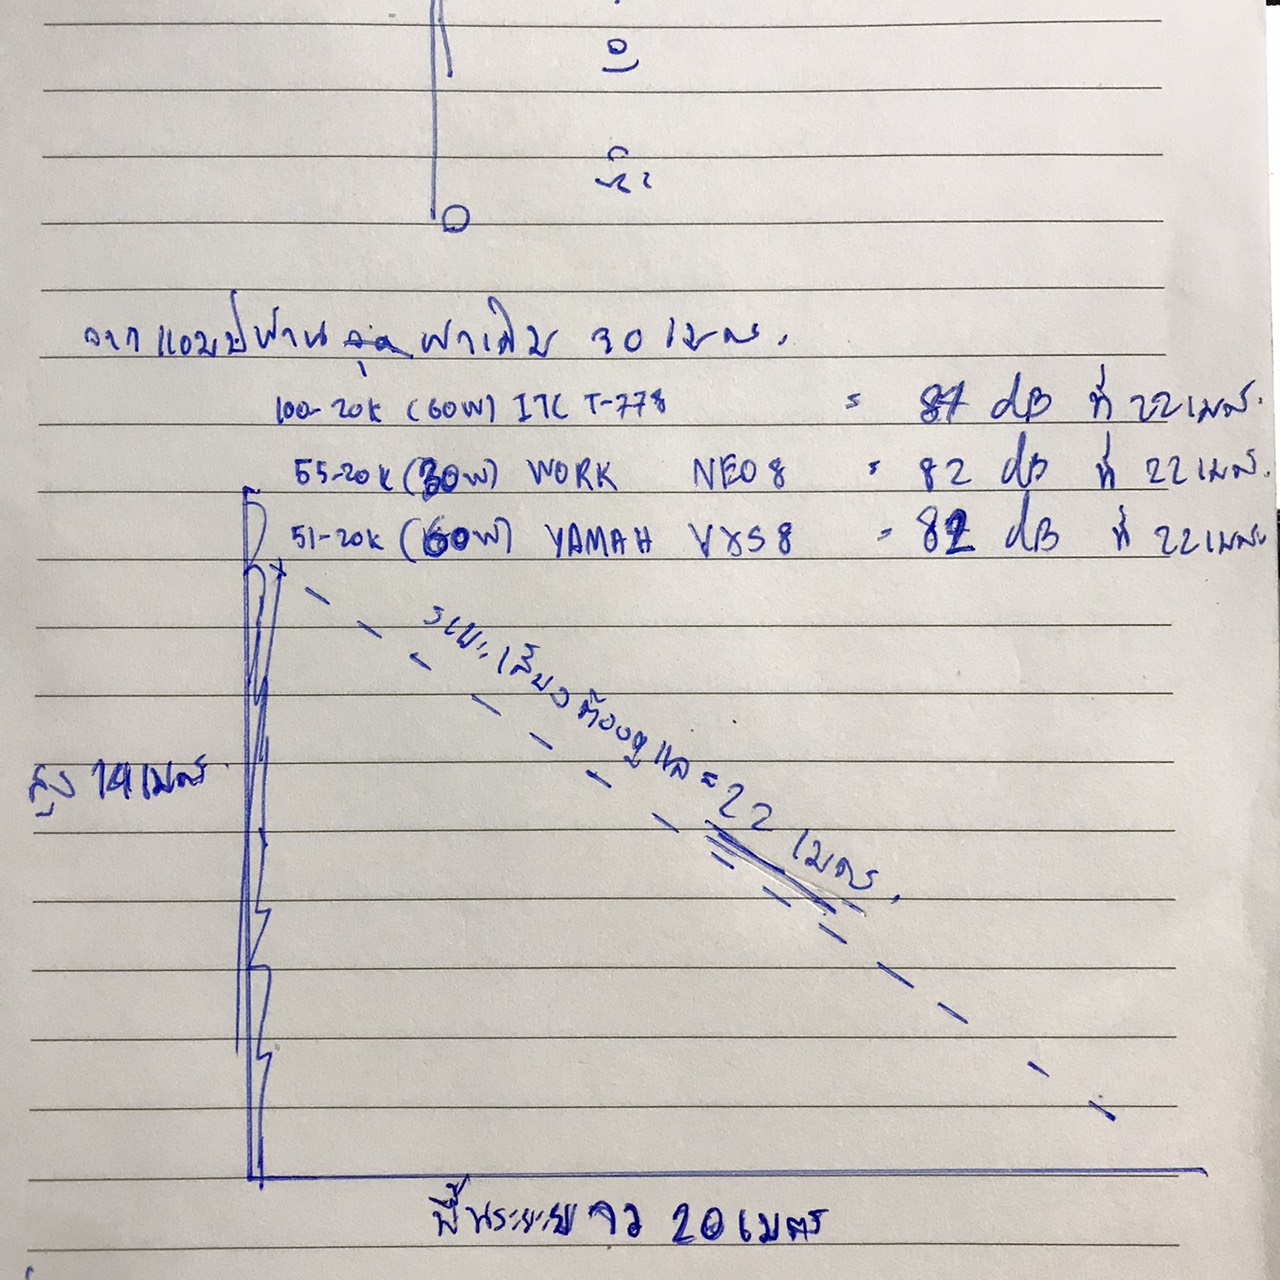 จากแอมป์ผ่าน ฝาเดิม 30 เมตร.
100-20K (60W) ITC T-778 = 87 dB ที่ 22 เมตร.
55-20K (30W) WORK NEO 8 = 82 dB ที่ 22 เมตร.
51-20K (60W) YAMAH VXS 8 = 82 dB ที่ 22 เมตร
ระยะเสียงต้องดูแล = 22 เมตร.
สูง 14 เมตร
พื้นระยะยาว 20 เมตร